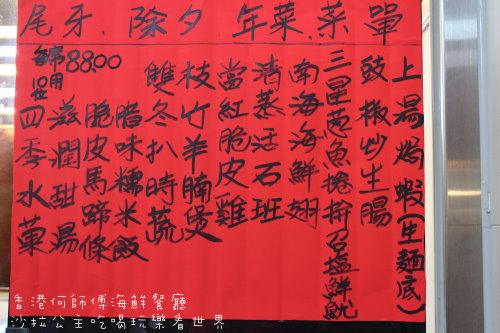 尾牙.除夕 年菜.菜單
每席只用8800
上湯焗蝦(生麵底)
豉椒炒生腸
三星葱魚捲拚招塩鮮魷
南海海鮮翅
清蒸活石班
當紅脆皮雞
枝竹羊腩煲
雙冬扒時蔬
腊味糯米飯
脆皮馬蹄條
滋潤甜湯
四季水菓
香港何師傅海鮮餐廳
沙拉公主吃喝玩樂看世界